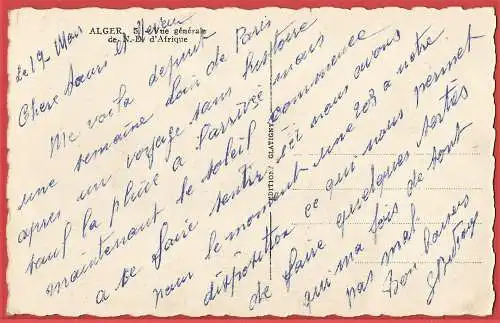 ALGER. 5. - Vue générale
de N.-D. d'Afrique
Le 19 Mars
Chère Sœur et Neveu
Me voila depuis
une semaine loin de Paris
après un voyage sans histoire
sauf la pluie a l'arrivée mais
maintenant le soleil commence
a se faire sentir, et nous avons
pour le moment une 203 a notre
disposition ce qui nous permet
de faire quelques sorties
qui ma fois de tout
pas mal.
Bon baisers
EDITIONS GLATIGNY